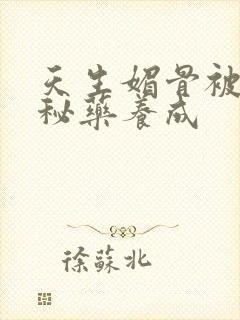 天生媚骨被
秘藥養成
徐蘇北